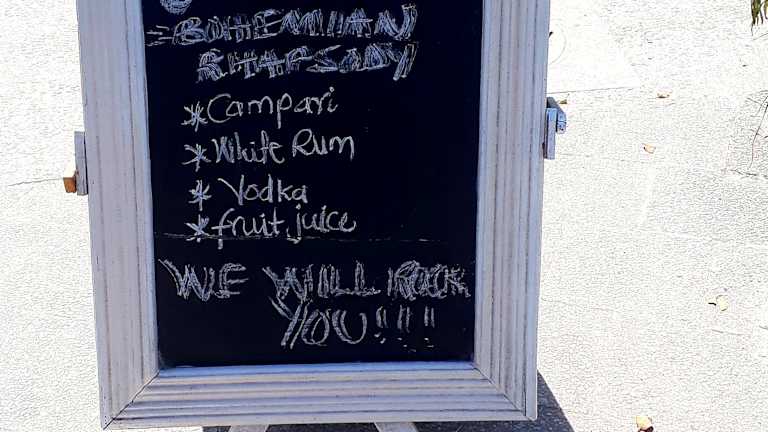 BOHEMIIAN
RHAPSODY
*Campari
*White Rum
* Vodka
*fruit juice
WE WILL ROCK
YOU!!!!